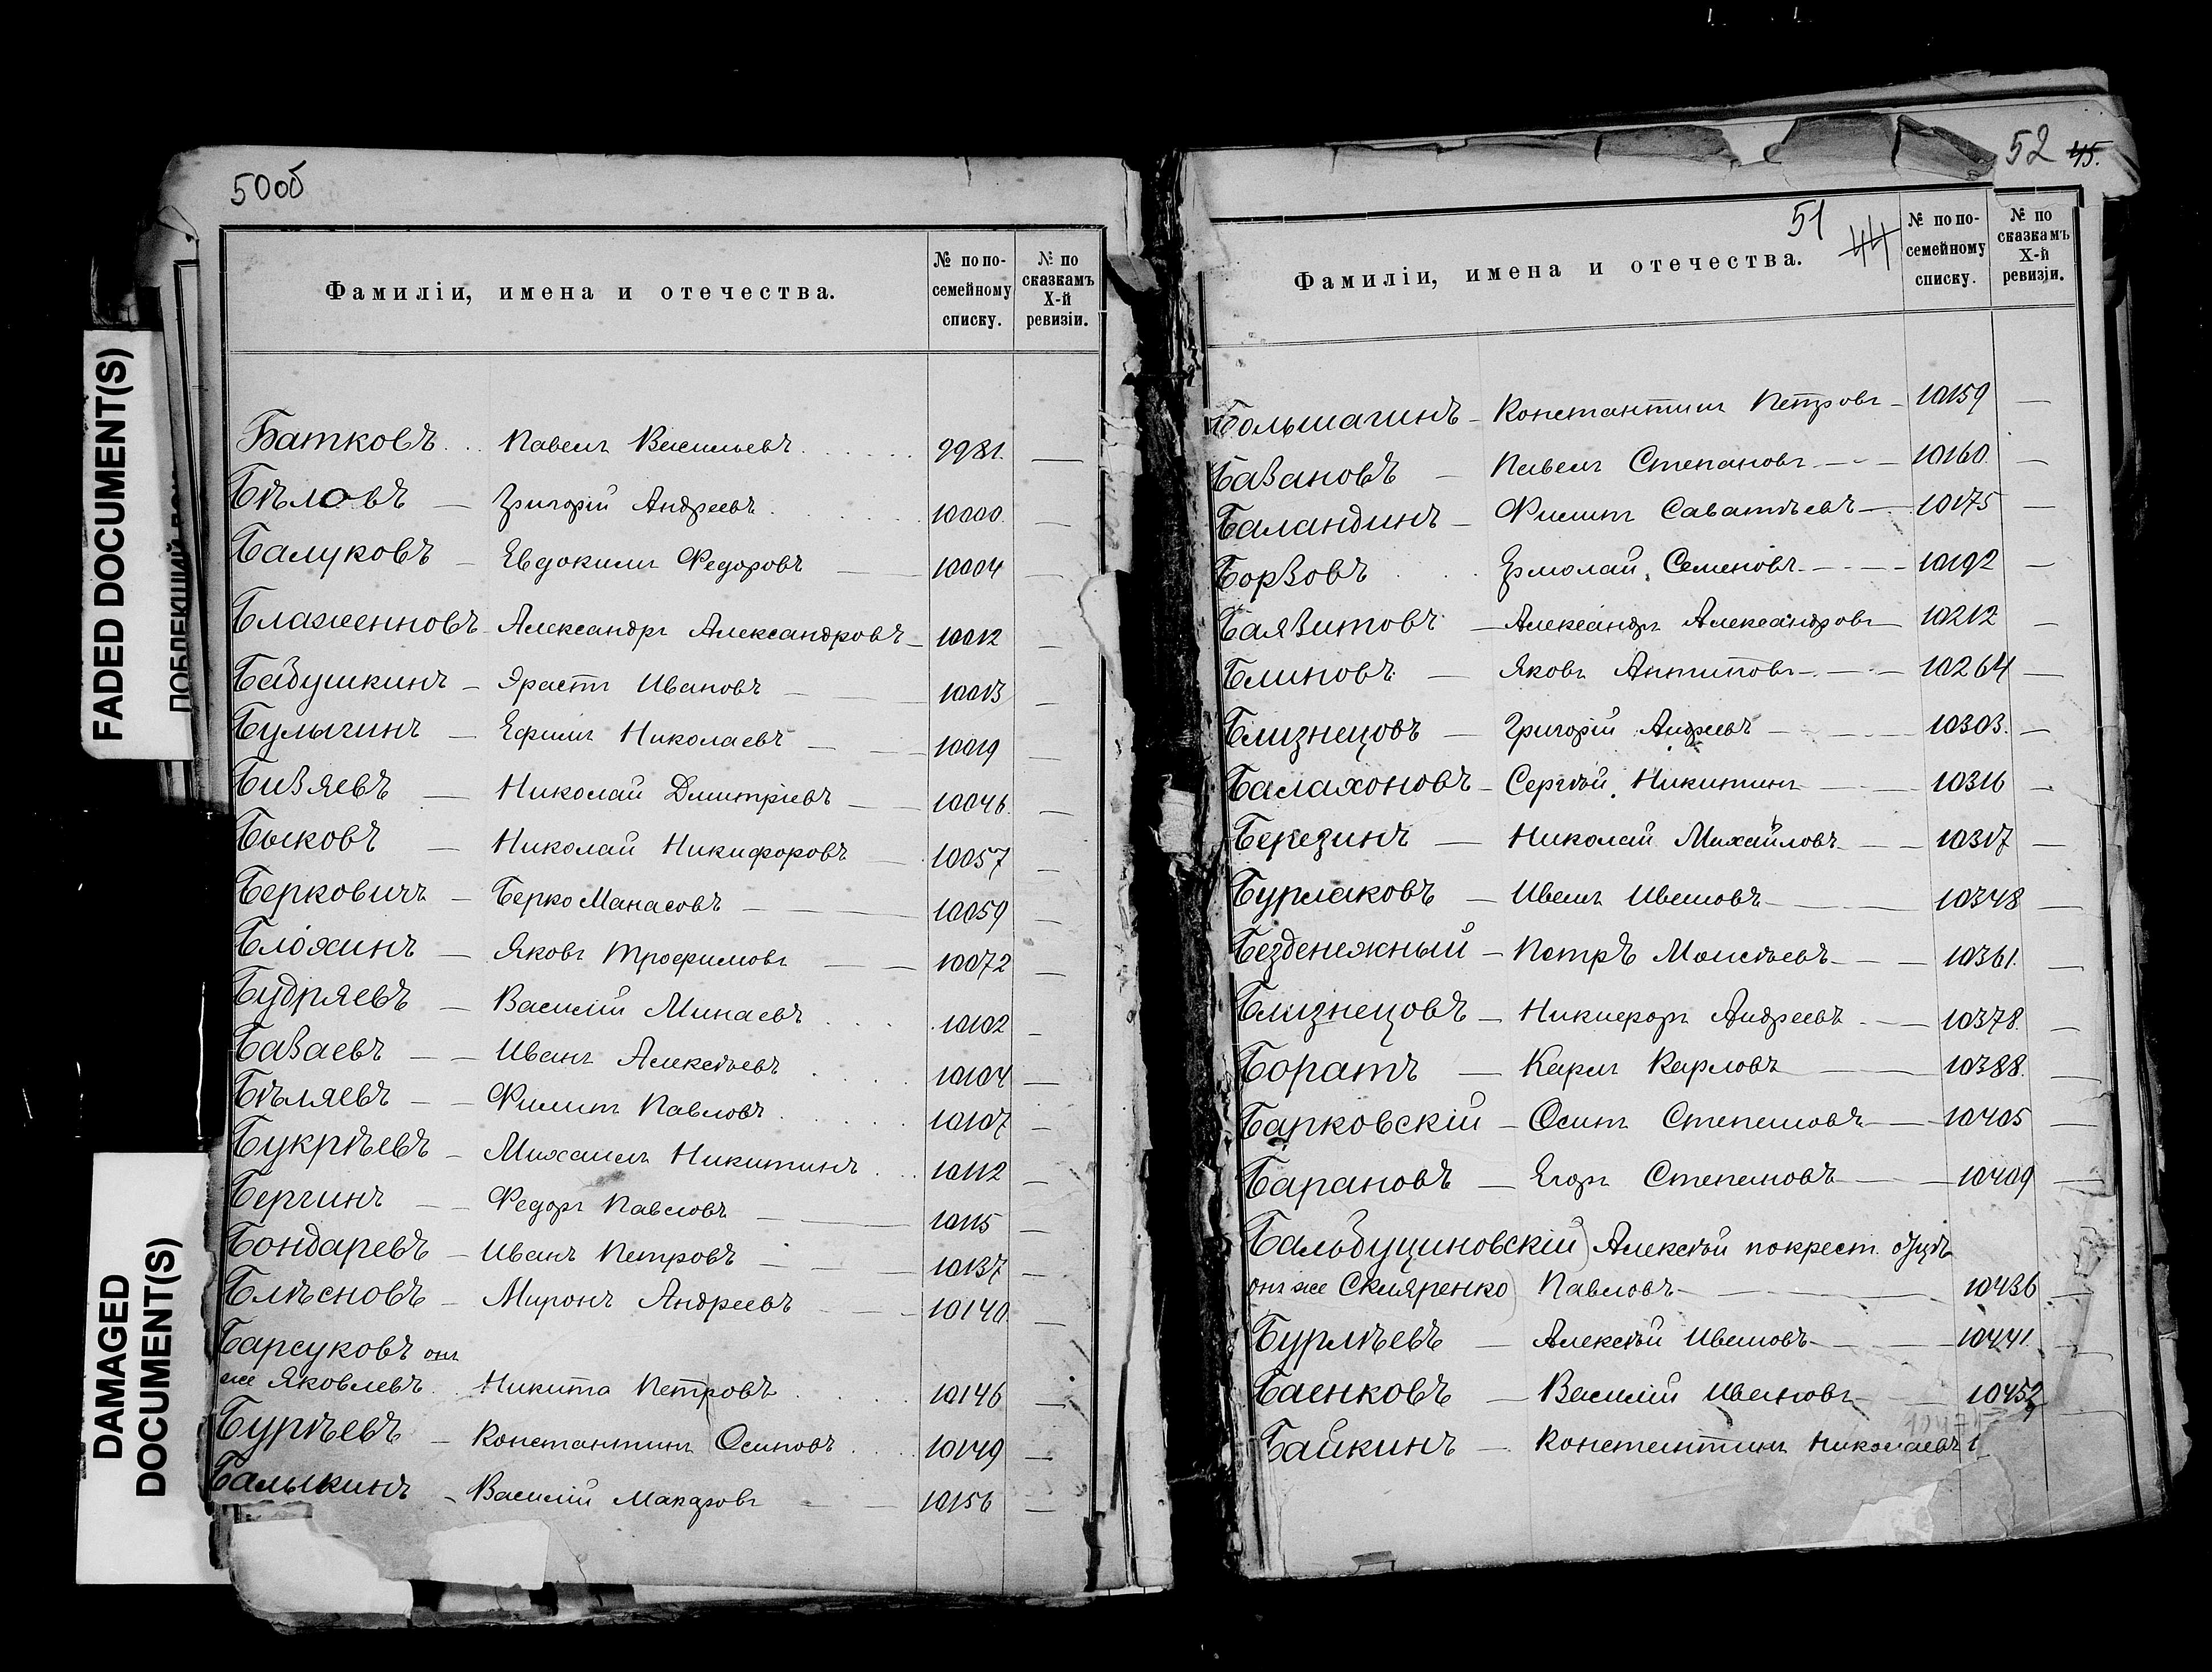 50об
Фамиліи, имена и отечества.
№ по по-
семейному
списку.
№ по
сказкамъ
X-й
ревизіи.
Батковъ Павелъ Васильевъ 9981. —
Бѣловъ — Григорій Андреевъ 10000. —
Балуковъ — Евдокимъ Федоровъ — 10004 —
Блаженновъ Александръ Александровъ — 10012 —
Бабушкинъ — Эрастъ Ивановъ — 10013 —
Булыгинъ — Ефимъ Николаевъ — 10019 —
Бизяевъ — Николай Дмитріевъ — 10046. —
Быковъ — Николай Никифоровъ — 10057 —
Берковичъ — Берко Манасовъ — 10059 —
Блохинъ — Яковъ Трофимовъ — 10072 —
Будряевъ — Василій Минаевъ 10102 —
Базаевъ — Иванъ Алексѣевъ 10104 —
Бѣляевъ — Филипъ Павловъ 10107 —
Букрѣевъ — Михаилъ Никитинъ 10112 —
Бергинъ — Федоръ Павловъ — 10115 —
Бондаревъ — Иванъ Петровъ — 10137 —
Блѣсновъ — Миронъ Андреевъ — 10140. —
Барсуковъ онъ
же Яковлевъ Никита Петровъ 10146 —
Бурѣевъ — Константинъ Осиповъ 10149 —
Балыкинъ — Василій Макаровъ — 10156 —
FADED DOCUMENT(S)
DAMAGED
DOCUMENT(S)
52 45.
51 44
Фамиліи, имена и отечества.
№ по по-
семейному
списку.
№ по
сказкамъ
X-й
ревизіи.
Большагинъ — Константинъ Петровъ — 10159 —
Базановъ — Павелъ Степановъ — 10160. —
Баландинъ — Филипъ Саватѣевъ — 10175 —
Борзовъ Ермолай Семеновъ — 10192 —
Баязитовъ — Александръ Александровъ — 10212 —
Блиновъ — Яковъ Антиповъ — 10264 —
Близнецовъ — Григорій Андреевъ — 10303. —
Балахоновъ — Сергѣй Никитинъ — 10316 —
Березинъ — Николай Михайловъ — 10317 —
Бурлаковъ — Иванъ Ивановъ — 10348 —
Безденежный — Петръ Моисѣевъ — 10361. —
Близнецовъ — Никифоръ Андреевъ — 10378. —
Боратъ — Карлъ Карловъ — 10388. —
Барковскій — Осипъ Степановъ — 10405 —
Барановъ — Егоръ Степановъ — 10409 —
Бальбуциновскій) Алексѣй по крест. отцу
онъ же Скляренко) Павловъ — 10436 —
Бурлѣевъ — Алексѣй Ивановъ — 10441. —
Баенковъ — Василій Ивановъ — 10452
Байкинъ — Константинъ Николаевъ